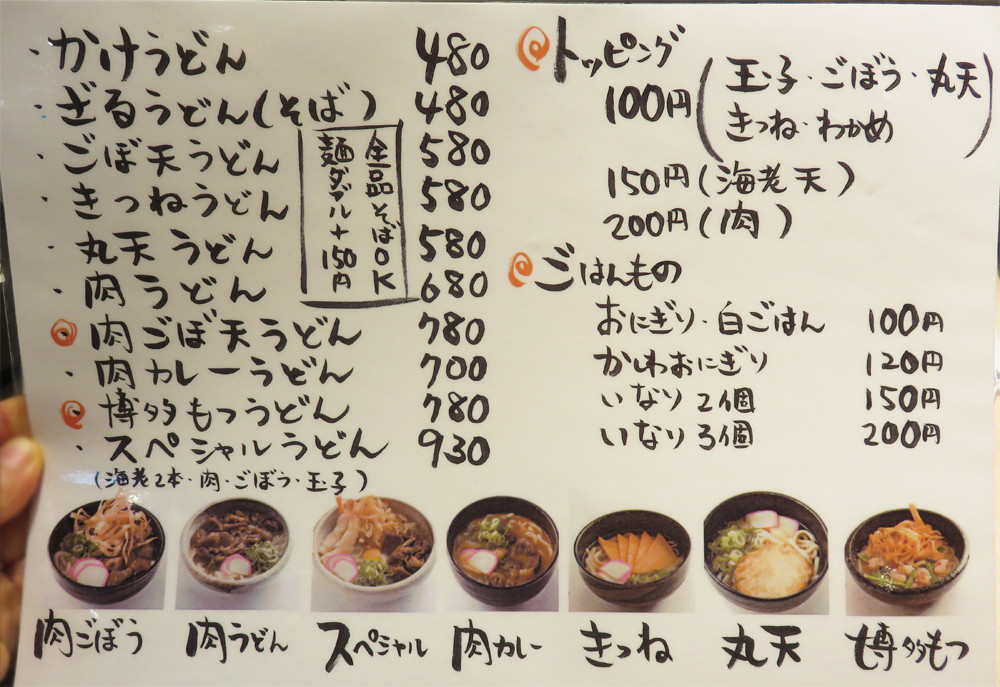 ・かけうどん 480
・ざるうどん(そば) 480
・ごぼ天うどん 580
・きつねうどん 580
・丸天うどん 580
・肉うどん 680
肉ごぼ天うどん 780
・肉カレーうどん 700
博多もつうどん 780
・スペシャルうどん 930
(海老2本・肉・ごぼう・玉子)
全品そばOK
麺ダブル+150円
トッピング
100円(玉子・ごぼう・丸天
きつね・わかめ)
150円(海老天)
200円(肉)
ごはんもの
おにぎり・白ごはん 100円
かしわおにぎり 120円
いなり2個 150円
いなり3個 200円
肉ごぼう 肉うどん スペシャル 肉カレー きつね 丸天 博多もつ